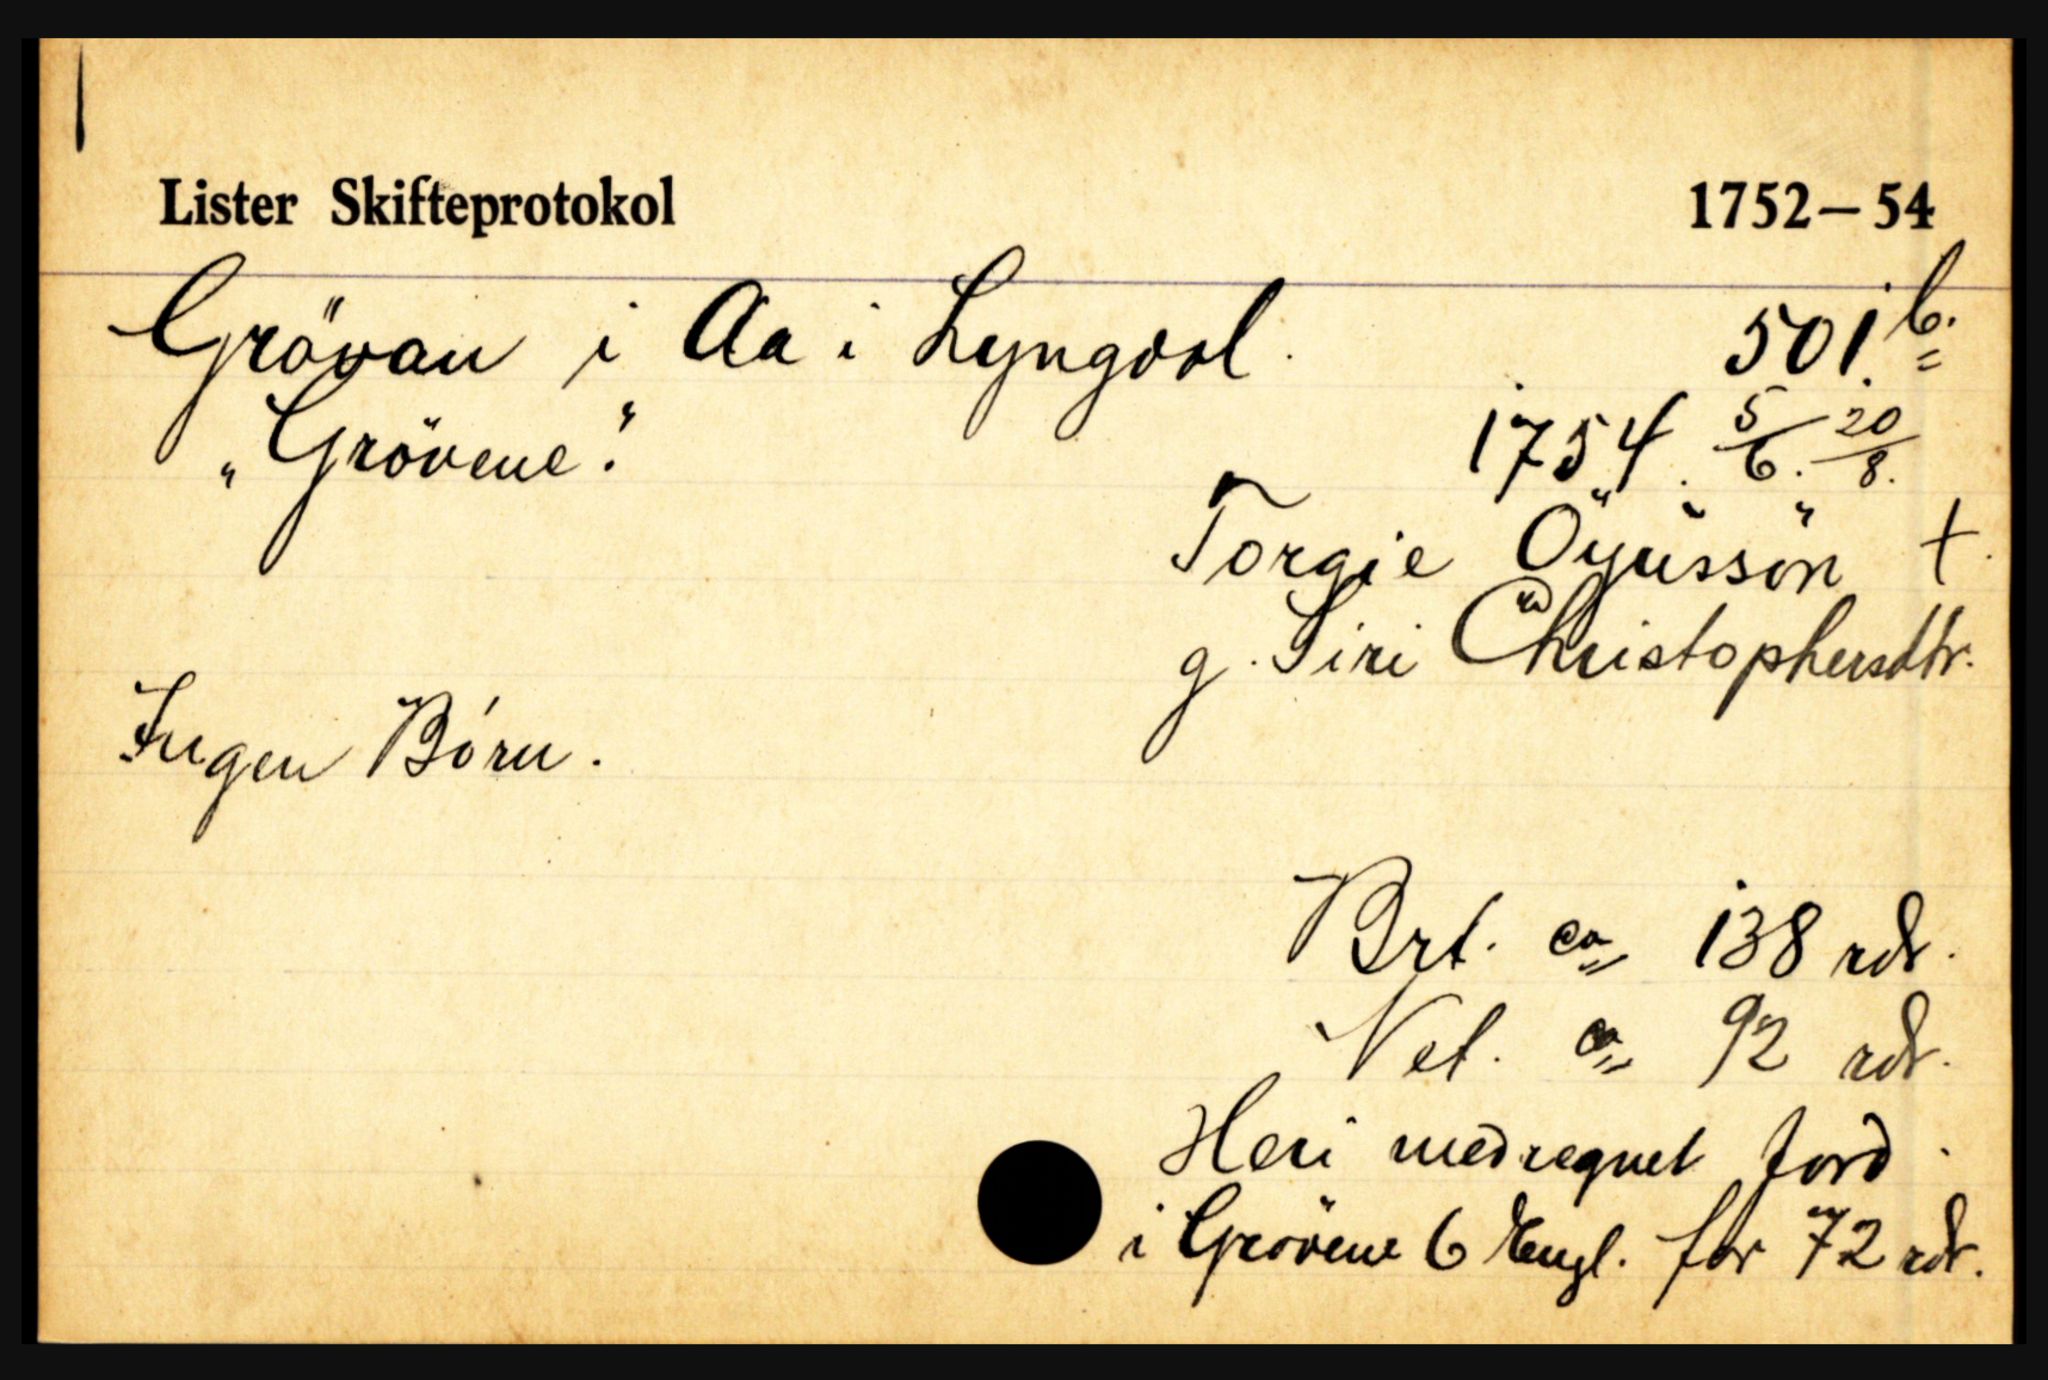 Lister Skifteprotokol 1752-54
Grövan i Aa i Lyngdal. 501 b.
"Grövene". 1754. 5/6. 20/8.
Torgie Öyusson +.
g. Siri Christophersdtr.
Ingen Börn.
Brt. ca 138 rdr.
Net. ca 92 rdr.
Heri medregnet Jord
i Grövene 6 Engl. for 72 rdr.